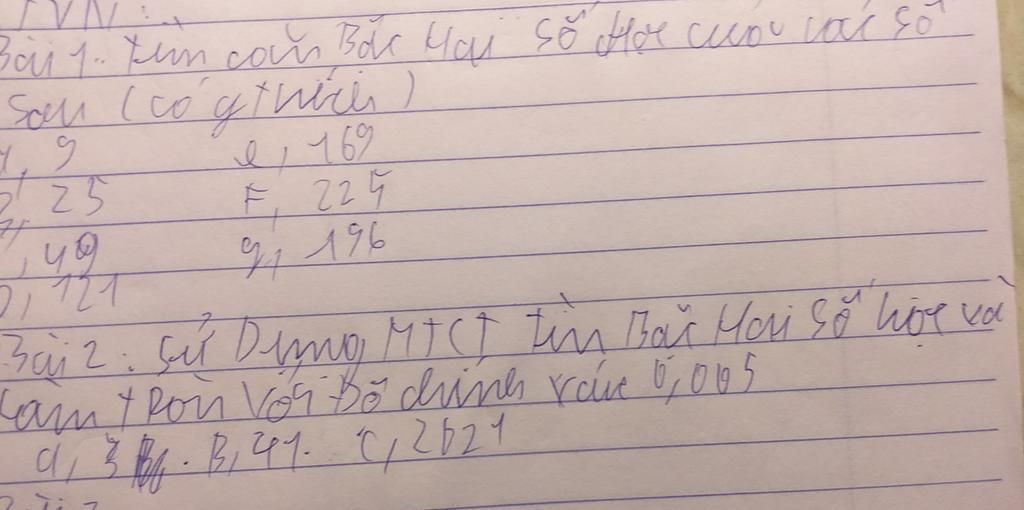 Bài 1. tìm căn Bắc Hai số học của các số
sau (có g thích)
, 9 e, 169
, 25 F, 225
, 49 g, 196
, 121
Bài 2: Sử Dụng MTCT tìm Bắc Hai số học và
Làm tRòn Với Độ chính xác 0,005
a, 3 . B, 41. C, 2021